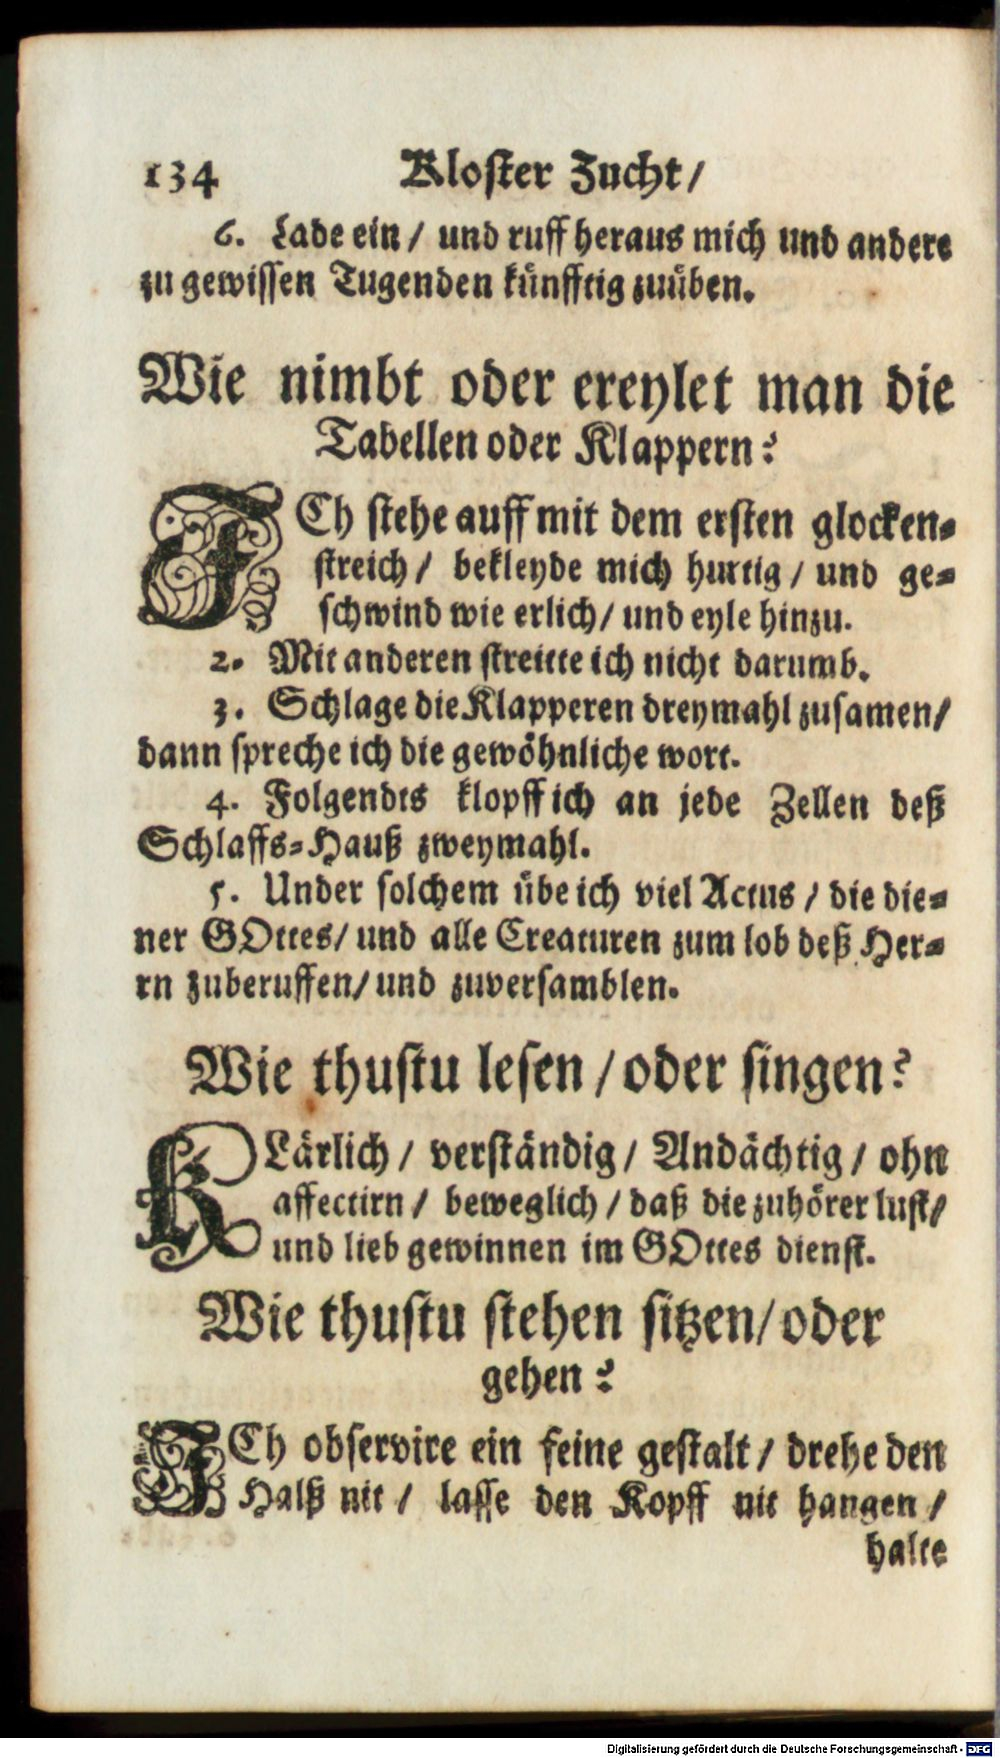 134 Kloster Zucht/
6. Lade ein / und ruff heraus mich und andere
zu gewissen Tugenden künfftig zuüben.
Wie nimbt oder ereylet man die
Tabellen oder Klappern?
ICh stehe auff mit dem ersten glocken-
streich / bekleyde mich hurtig / und ge-
schwind wie erlich / und eyle hinzu.
2. Mit anderen streitte ich nicht darumb.
3. Schlage die Klapperen dreymahl zusamen/
dann spreche ich die gewöhnliche wort.
4. Folgendts klopff ich an jede Zellen deß
Schlaffs-Hauß zweymahl.
5. Under solchem übe ich viel Actus / die die-
ner GOttes/ und alle Creaturen zum lob deß Her-
rn zuberuffen/ und zuversamblen.
Wie thustu lesen / oder singen?
KLärlich / verständig / Andächtig / ohn
affectirn / beweglich / daß die zuhörer lust/
und lieb gewinnen im GOttes dienst.
Wie thustu stehen sitzen/ oder
gehen?
ICh observire ein feine gestalt / drehe den
Halß nit / lasse den Kopff nit hangen /
halte
Digitalisierung gefördert durch die Deutsche Forschungsgemeinschaft - DFG